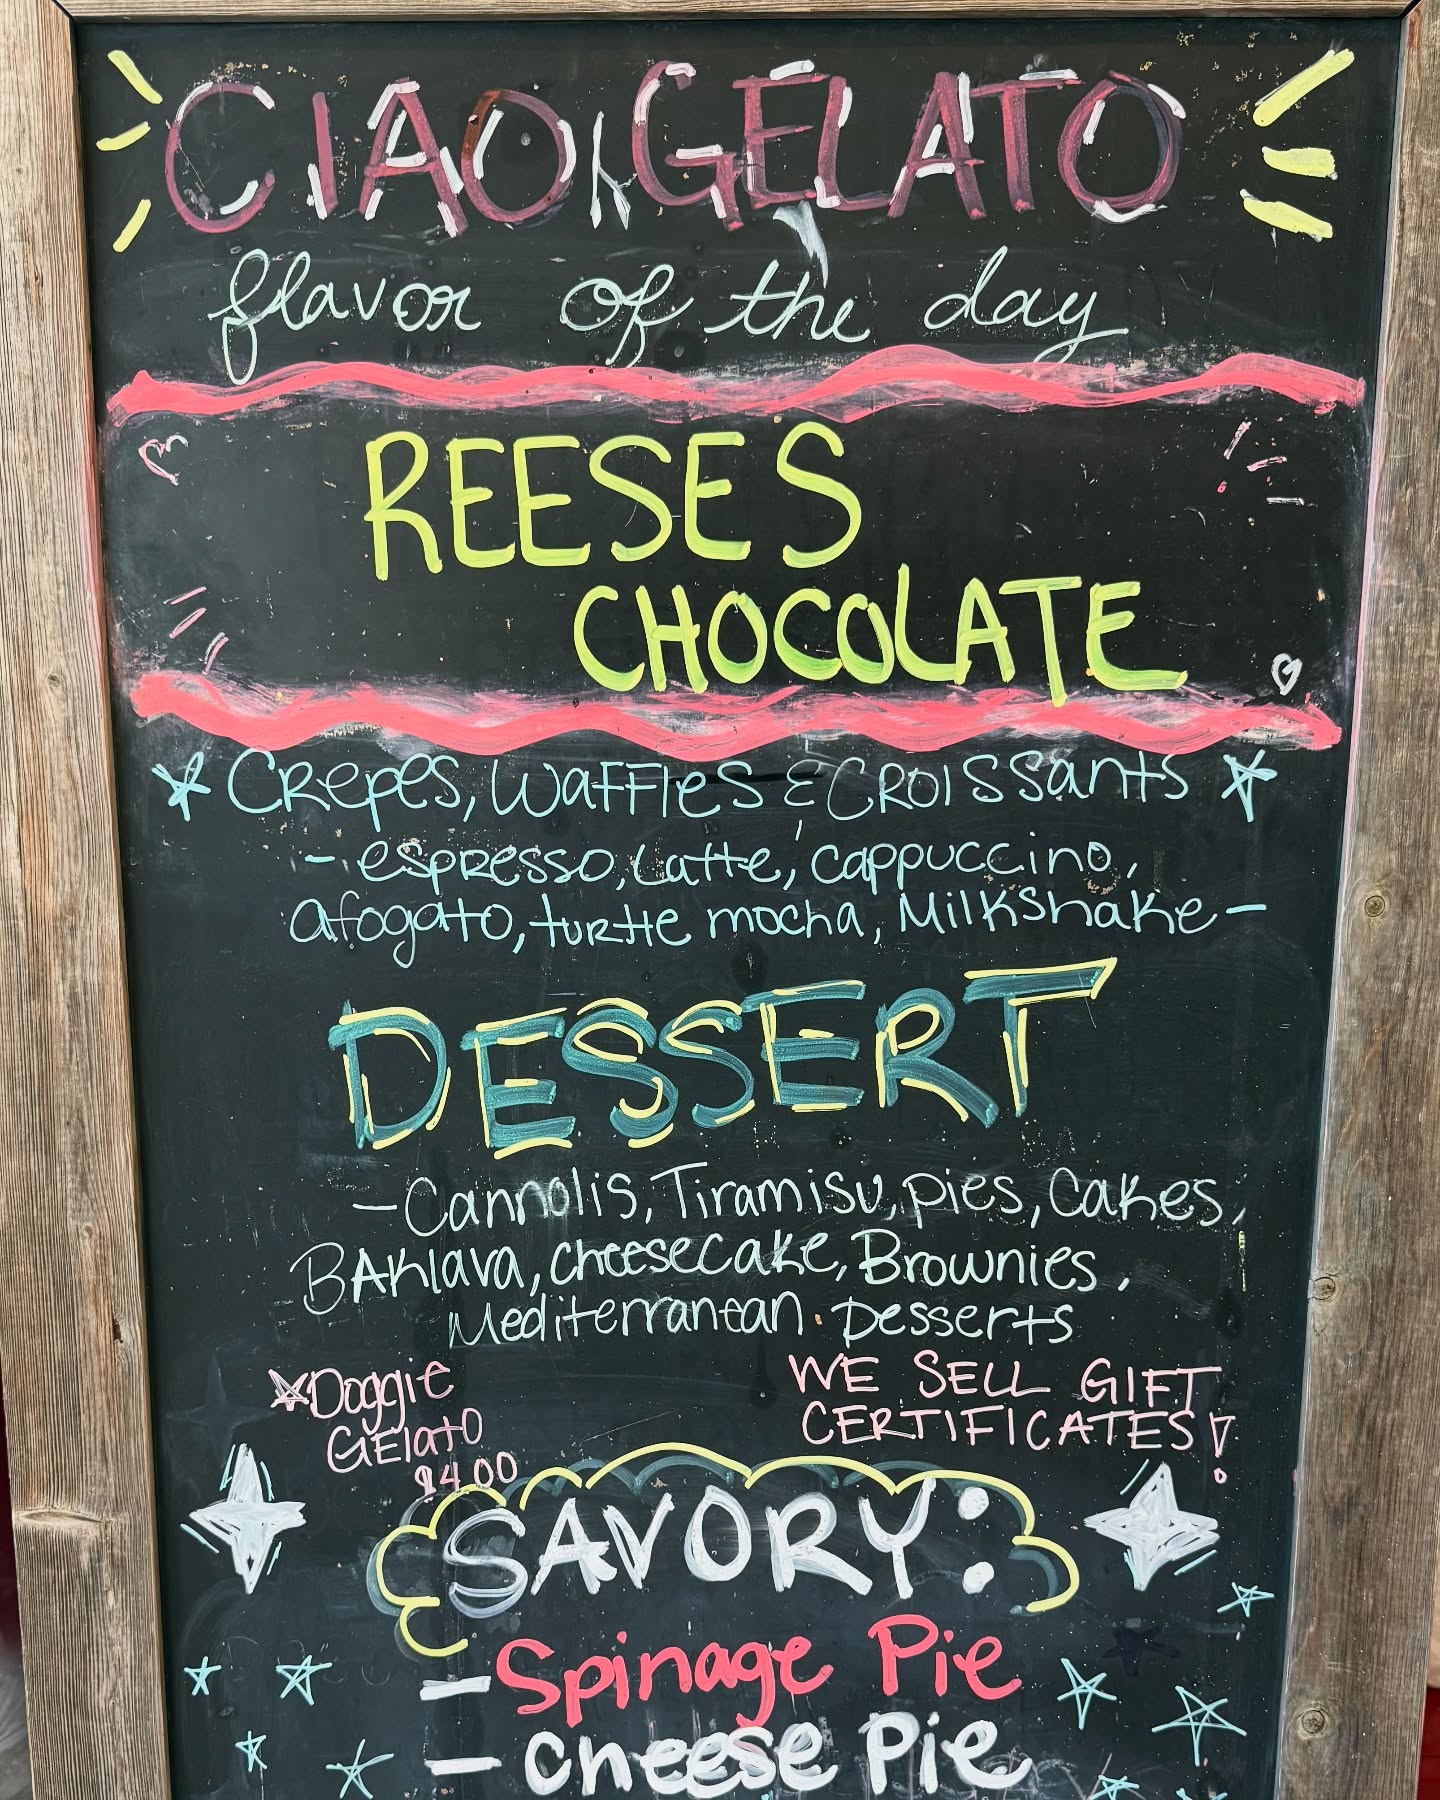 CIAO GELATO
flavor of the day
REESES
CHOCOLATE
Crepes, Waffles & Croissants
- espresso, Latte, cappuccino,
afogato, turtle mocha, Milkshake -
DESSERT
- Cannolis, Tiramisu, pies, Cakes,
BAKlava, cheesecake, Brownies,
Mediterranean Desserts
Doggie
GElato
$4.00
WE SELL GIFT
CERTIFICATES!
SAVORY:
- Spinage Pie
- cheese Pie